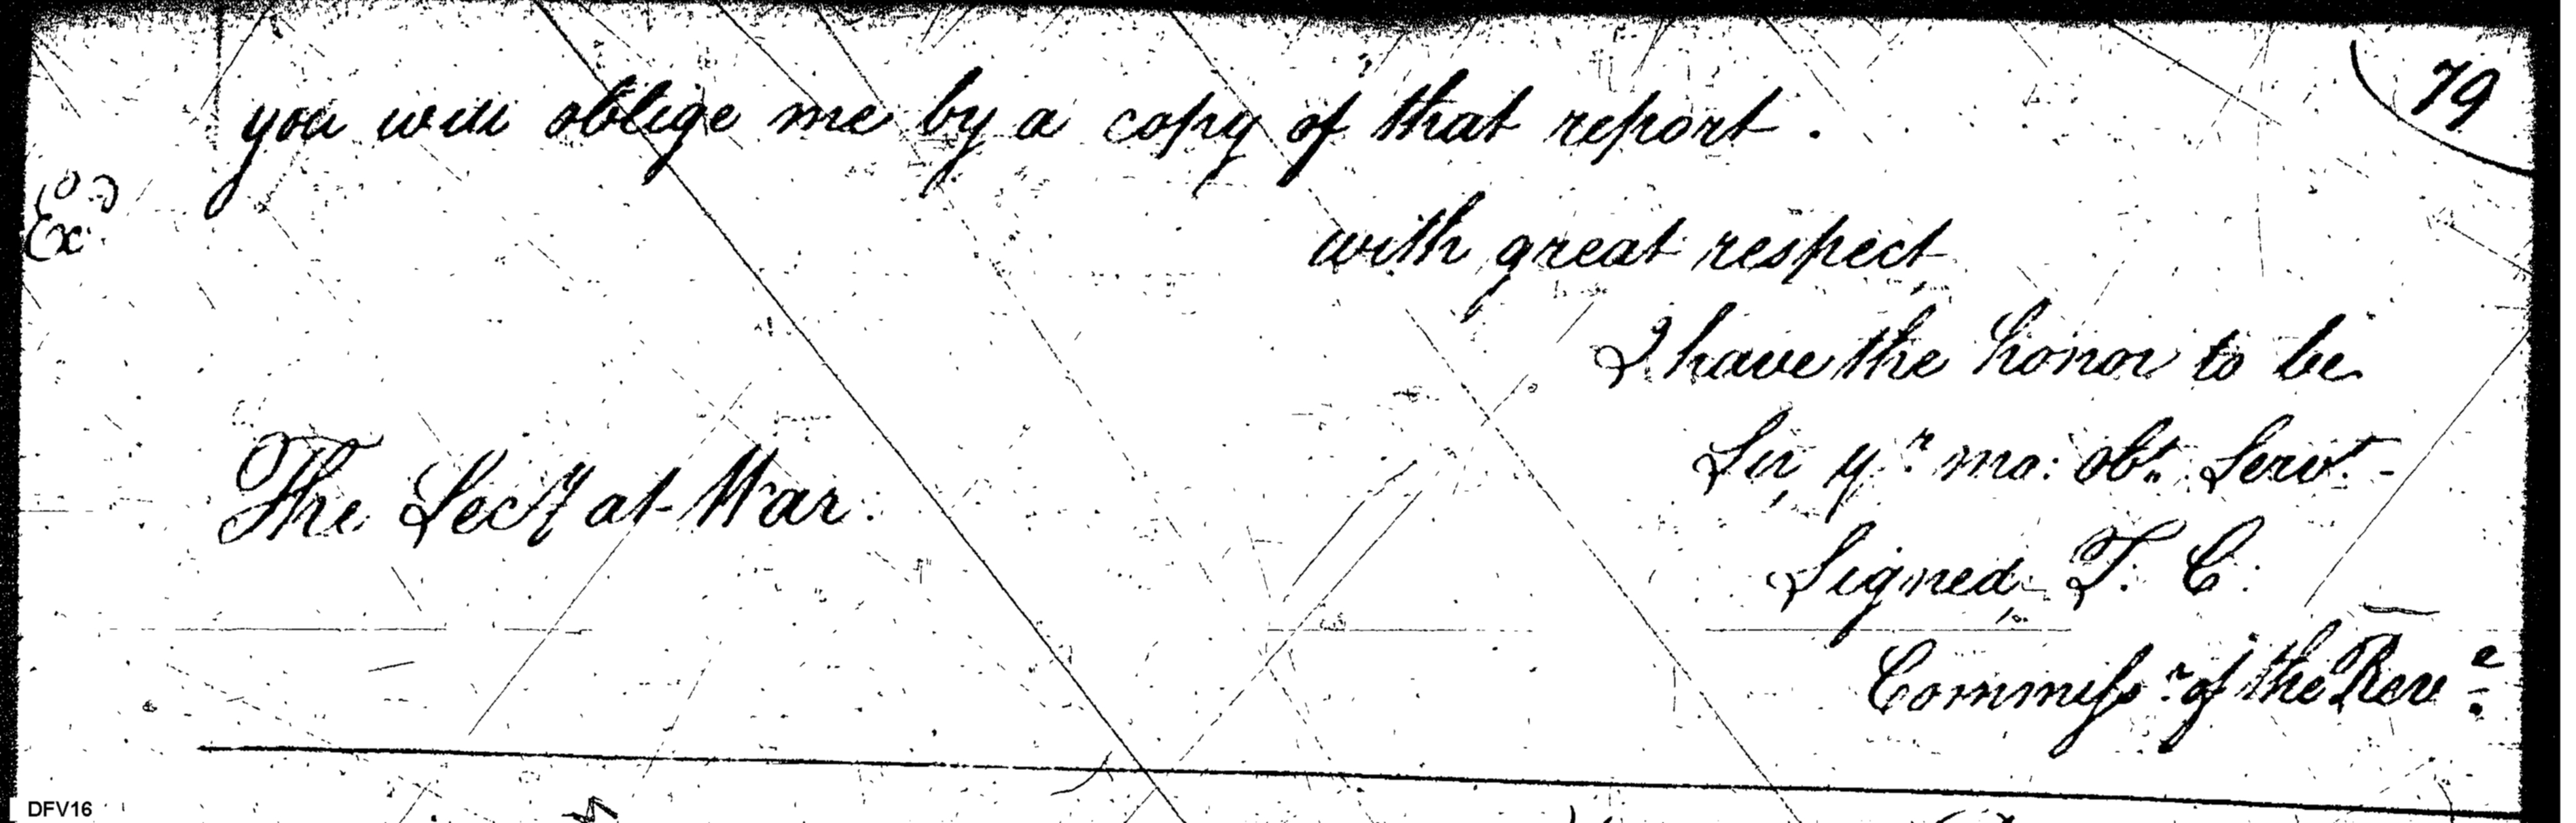 79
you will oblige me by a copy of that report.
Exd
with great respect
I have the honor to be
Sir, yr mo: obt. Servt.
The Secy at War.
Signed, T. C.
Commissr. of the Reve.
DFV16